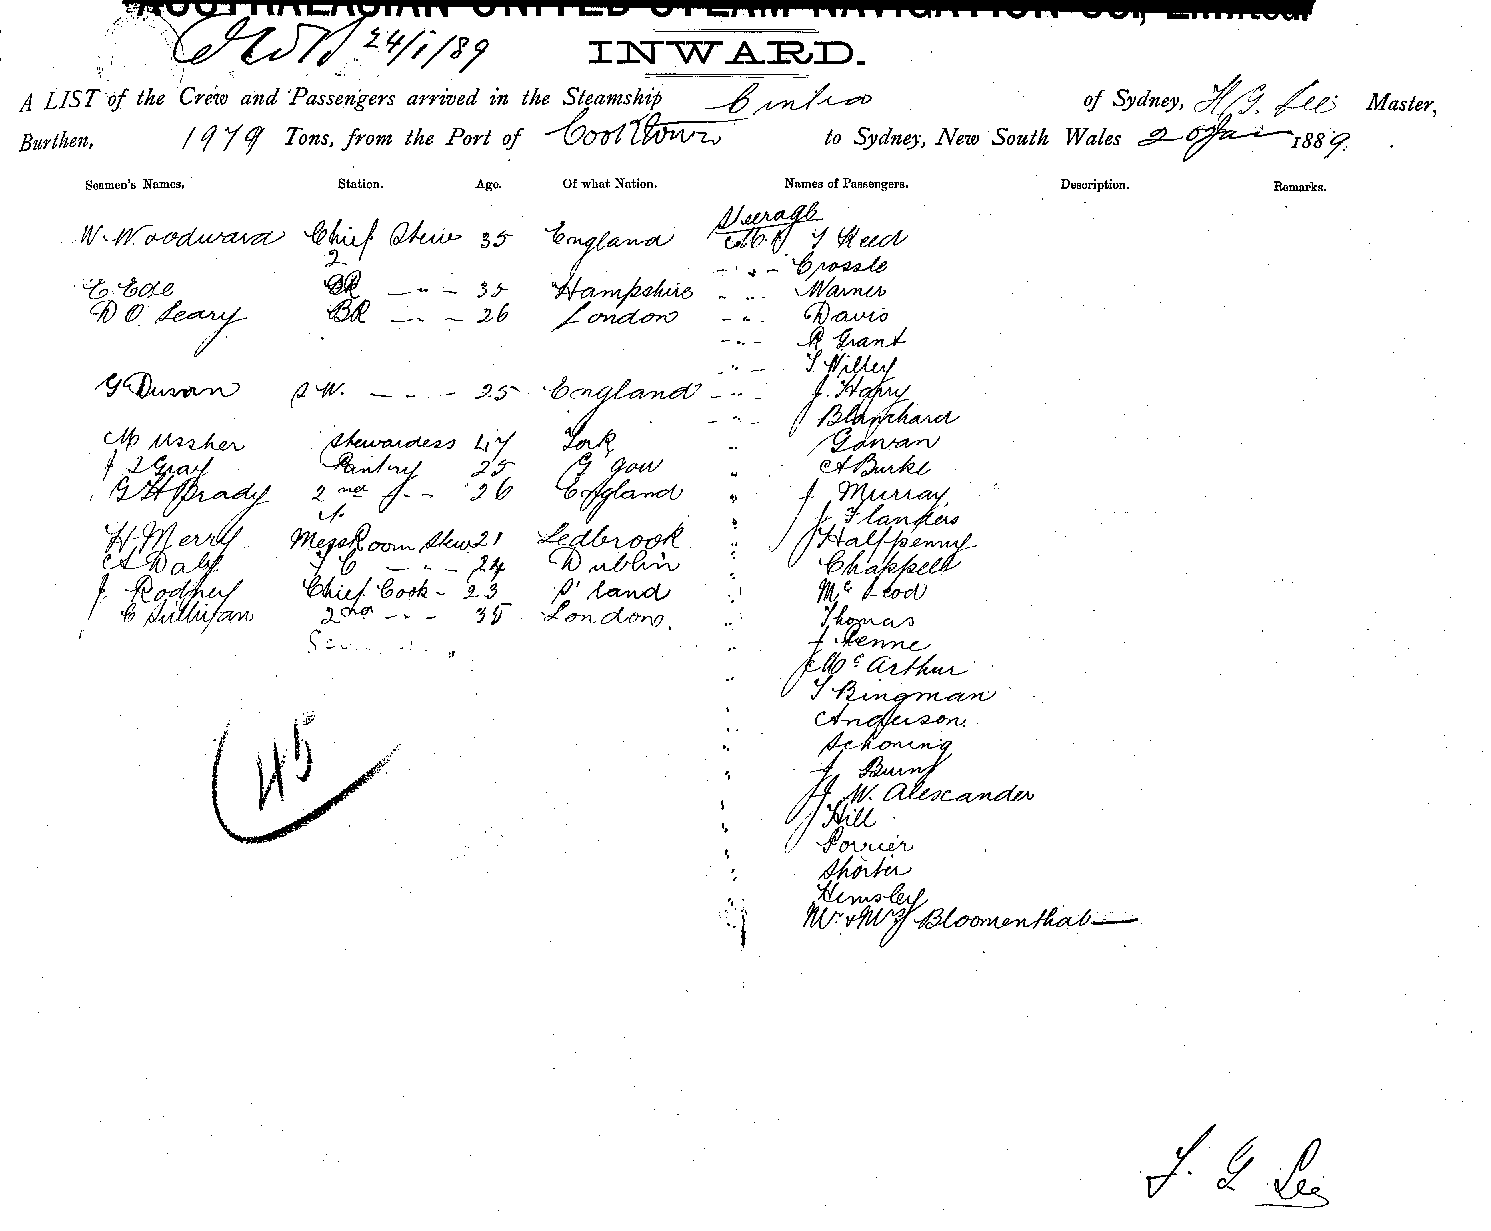 AUSTRALASIAN UNITED STEAM NAVIGATION Co., Limited.
24/1/89
INWARD.
A LIST of the Crew and Passengers arrived in the Steamship Cintra of Sydney, Lee Master,
Burthen, 1979 Tons, from the Port of Cooktown to Sydney, New South Wales 20 Jan 1889.
Seamen's Names. Station. Age. Of what Nation. Names of Passengers. Description. Remarks.
Steerage
W. Woodward Chief Stew 35 England Mr T Reed
2
" Crossle
E. Ede BR " 35 Hampshire " Warner
D O. Leary BR " 26 London " Davis
" R Grant
" T Willey
G Duran S W. " 25 England " J. Harry
" Blanchard
M Ussher Stewardess 47 York " Gowan
J S Gray Pantry 25 G gow " A Burke
G H Brady 2nd " 26 England " J Murray
" J. Flanders
H. Merry Mess Room Stew 21 Ledbrook " J Halfpenny
A Daly " 24 Dublin " Chappell
J. Rodney Chief Cook - 23 S' land " Mc Leod
C Sullivan 2nd " 35 London. " Thomas
" J. Renne
" J Mc Arthur
" T Bingman
" Anderson.
45
" Schoning
" J Burns
" J W. Alexander
" J Hill
" Porrier
" Shorter
" Hemsley
Mr & Mrs Bloomenthal
Lee